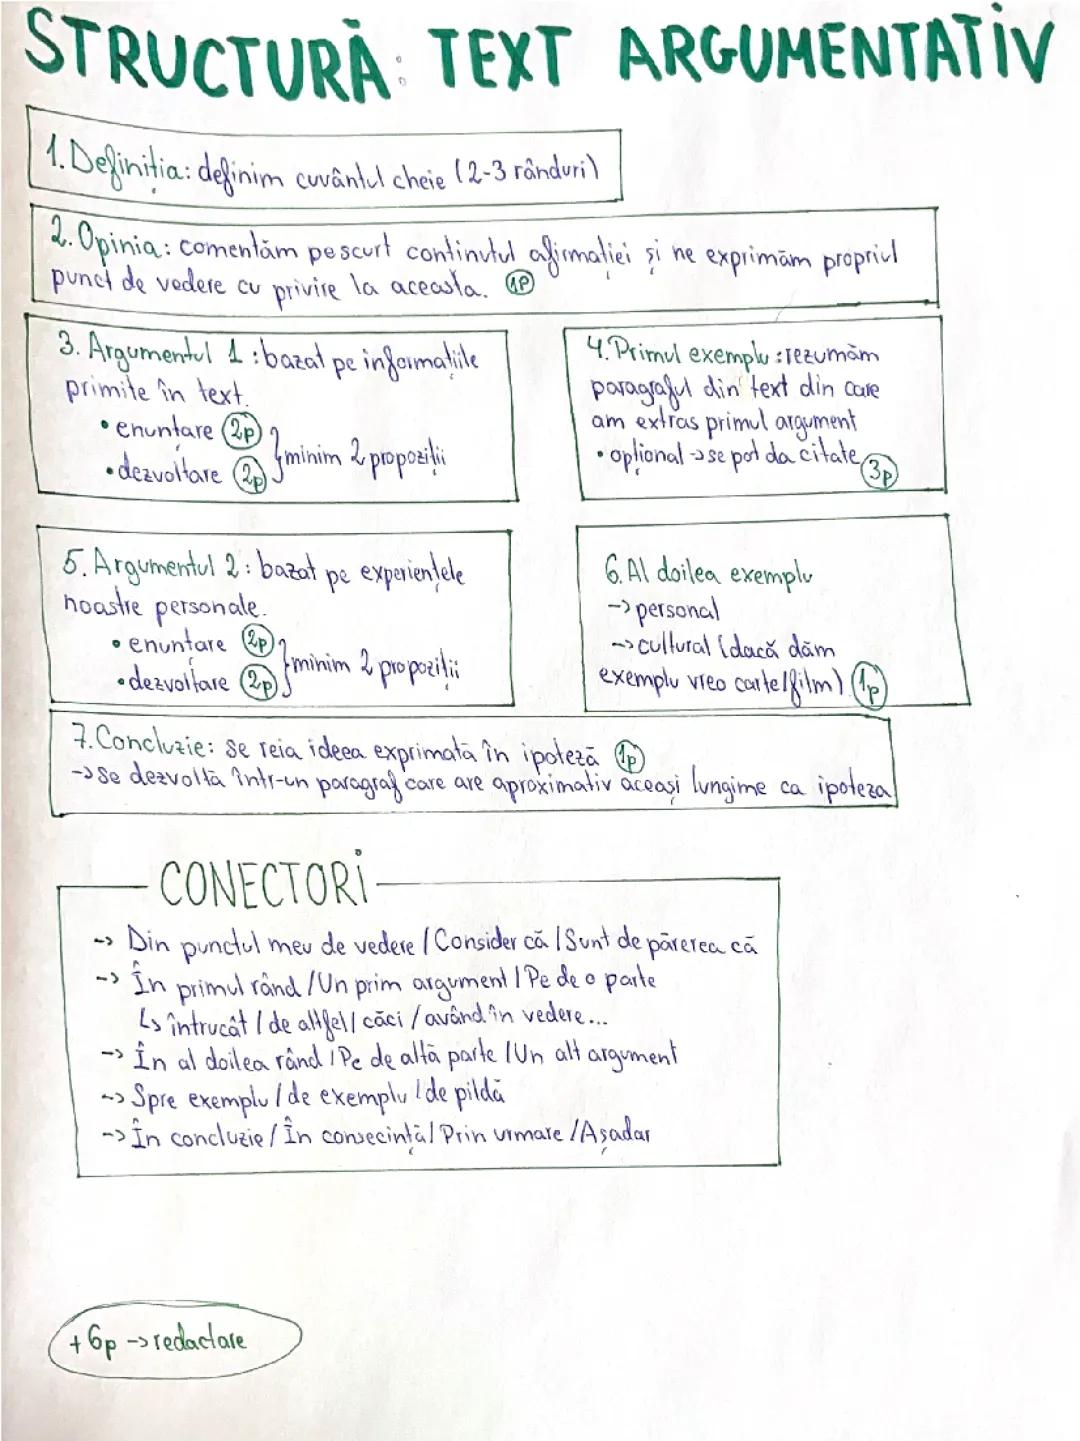 STRUCTURĂ: TEXT ARGUMENTATIV
1. Definiția: definim cuvântul cheie (2-3 rânduri)
2. Opinia: comentăm pe scurt conținutul afirmației și ne exprimăm propriul
punct de vedere cu privire la aceasta. 1P
3. Argumentul 1: bazat pe informațiile
primite în text.
• enunțare 2p
• dezvoltare 2p } minim 2 propoziții
4. Primul exemplu: rezumăm
paragraful din text din care
am extras primul argument
• opțional -> se pot da citate 3p
5. Argumentul 2: bazat pe experiențele
noastre personale.
• enunțare 2p
• dezvoltare 2p } minim 2 propoziții
6. Al doilea exemplu
-> personal
-> cultural (dacă dăm
exemplu vreo carte/film) 1p
7. Concluzie: se reia ideea exprimată în ipoteză 1p
-> se dezvoltă într-un paragraf care are aproximativ aceași lungime ca ipoteza
CONECTORI
-> Din punctul meu de vedere / Consider că / Sunt de părerea că
-> În primul rând / Un prim argument / Pe de o parte
↳ întrucât / de altfel / căci / având în vedere...
-> În al doilea rând / Pe de altă parte / Un alt argument
-> Spre exemplu / de exemplu / de pildă
-> În concluzie / În consecință / Prin urmare / Așadar
+ 6p -> redactare